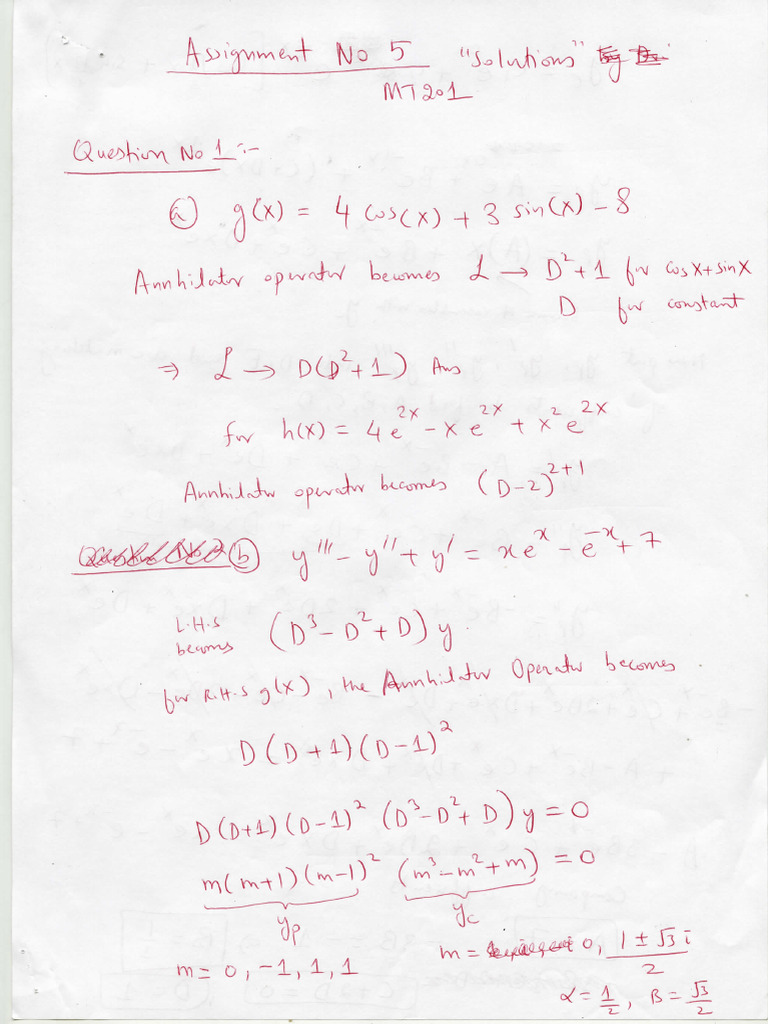 Assignment No 5 "Solutions"
MT201
Question No 1 :-
(a) g(x) = 4 cos(x) + 3 sin(x) - 8
Annhilator operator becomes L → D²+1 for cosx+sinx
D for constant
⇒ L → D(D²+1) Ans
for h(x) = 4e^{2x} - xe^{2x} + x²e^{2x}
Annhilator operator becomes (D-2)^{2+1}
(b) y''' - y'' + y' = xe^x - e^{-x} + 7
L.H.S
becomes (D³ - D² + D) y
for R.H.S g(x), the Annhilator Operator becomes.
D(D+1)(D-1)²
D(D+1)(D-1)² (D³-D²+D) y = 0
m(m+1)(m-1)² (m³-m²+m) = 0
yp yc
m = 0, -1, 1, 1
m = 0, (1 ± √3 i)/2
α = 1/2, B = √3/2